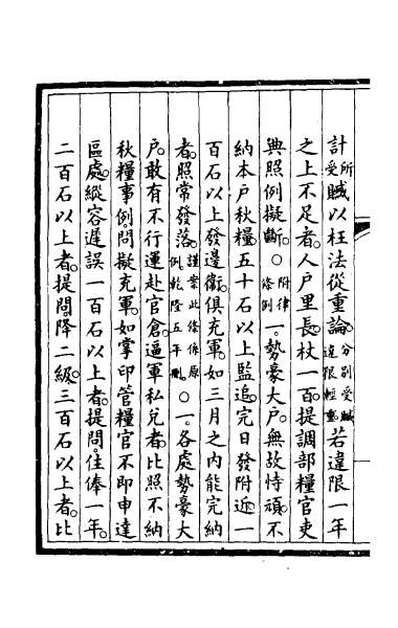 計所受贓以枉法從重論分別受贓違限輕重若違限一年
之上不足者人戶里長杖一百提調部糧官吏
典照例擬斷○附律條例一勢豪大戶無故恃頑不
納本戶秋糧五十石以上監追完日發附近一
百石以上發邊衞俱充軍如三月之內能完納
者照常發落謹案此條係原例乾隆五年刪○一各處勢豪大
戶敢有不行運赴官倉逼軍私兌者比照不納
秋糧事例問擬充軍如掌印管糧官不即申達
區處縱容遲誤一百石以上者提問住俸一年
二百石以上者提問降二級三百石以上者比